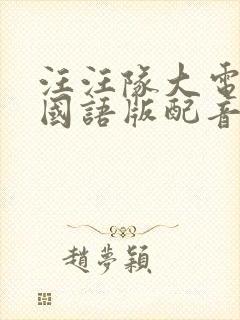 汪汪隊大電
國語版配音
趙夢穎